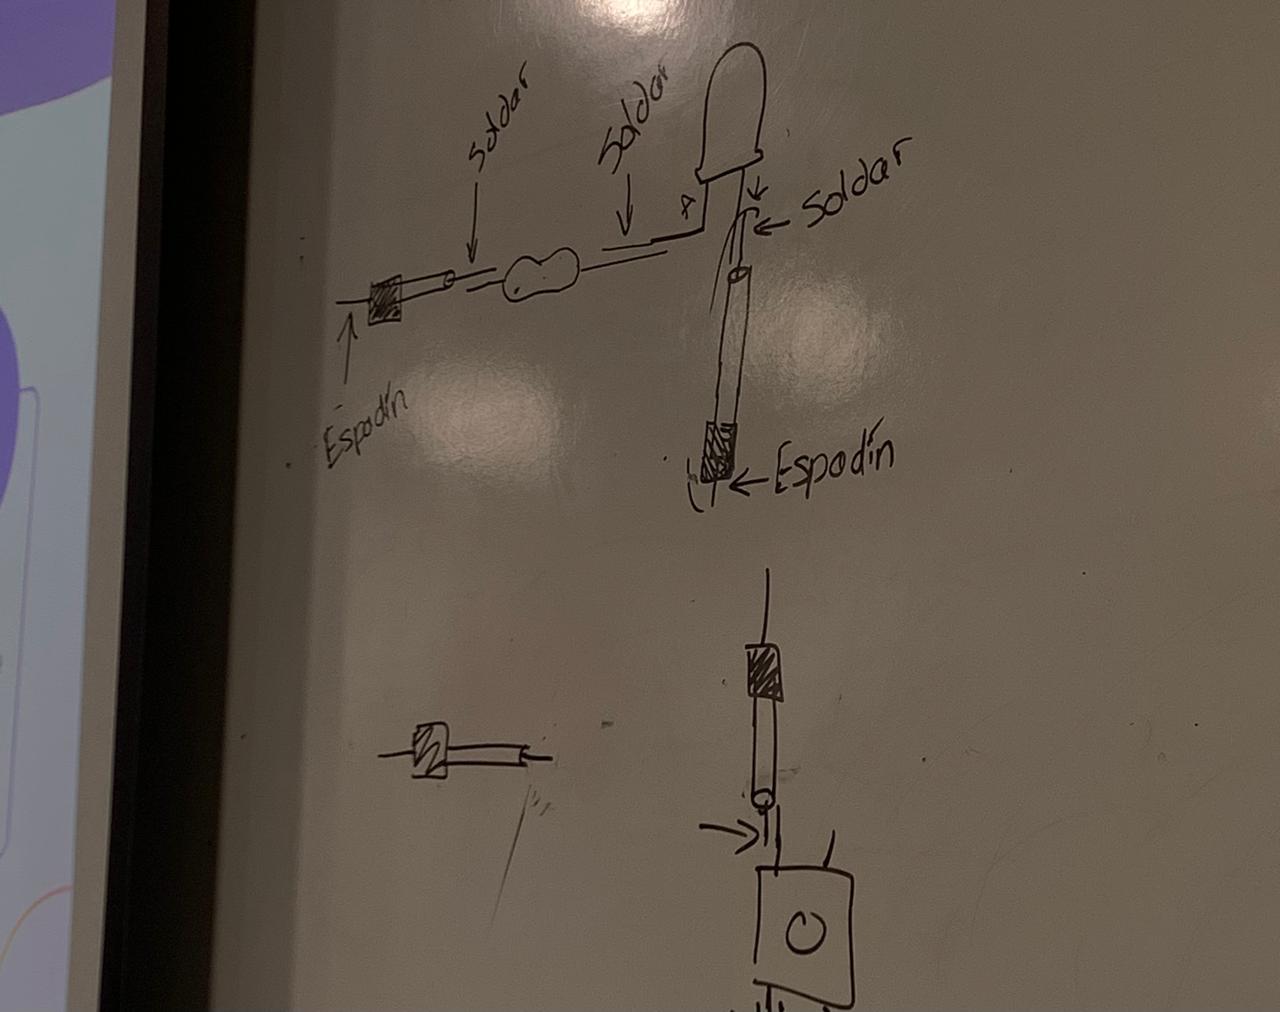 Soldar
Soldar
A
Soldar
Espadín
Espadín